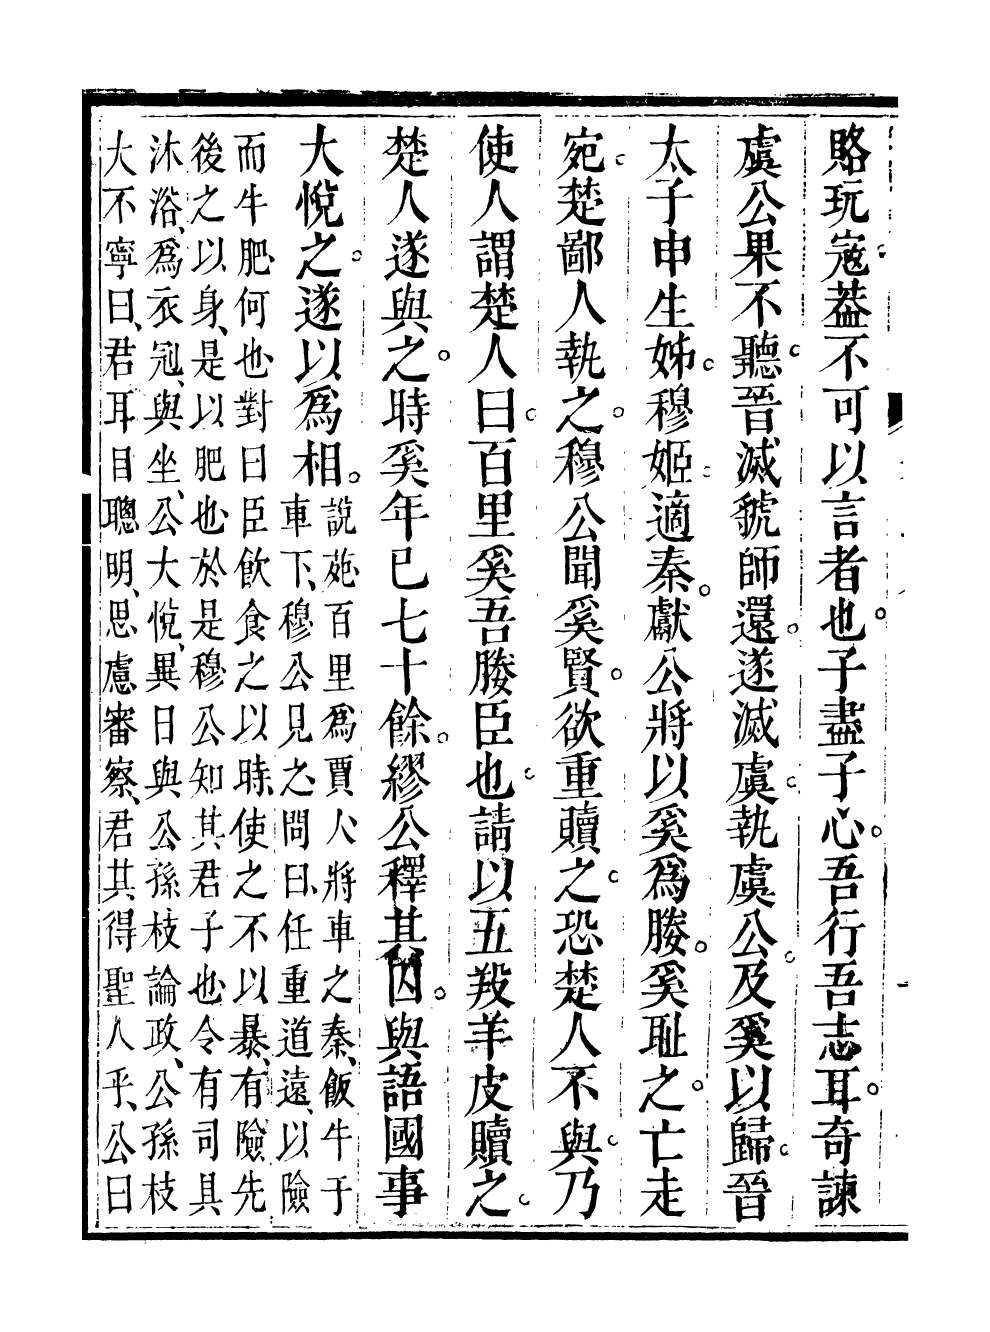 賂玩寇葢不可以言者也。子盡子心。吾行吾志耳。奇諫
虞公果不聽。晉滅虢師還。遂滅虞。執虞公。及奚以歸。晉
太子申生姊。穆姬。適秦。獻公將以奚爲媵。奚耻之。亡走
宛。楚鄙人執之。穆公聞奚賢。欲重贖之。恐楚人不與。乃
使人謂楚人曰。百里奚吾媵臣也。請以五羖羊皮贖之。
楚人遂與之。時奚年已七十餘。繆公釋其囚。與語國事
大悅之。遂以爲相。
說苑百里爲賈人將車之秦、飯牛于
車下、穆公見之問曰、任重道遠、以險
而牛肥何也對曰臣飲食之以時、使之不以暴、有險先
後之以身、是以肥也於是穆公知其君子也令有司具
沐浴、爲衣冠、與坐、公大悅、異日與公孫枝論政、公孫枝
大不寧曰、君耳目聰明、思慮審察、君其得聖人乎、公曰